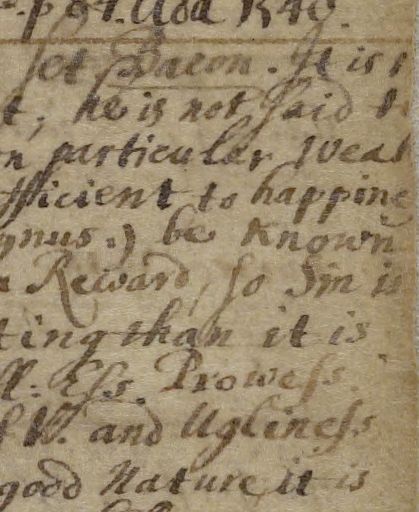 p 94. Add 1540.
set Bacon. It is
t; he is not said t
on particular Weal
fficient to happine
gnus.) be known
Reward, so Sin is
ting than it is
ll. Ess. Prowess.
and Ugliness
good Nature it is